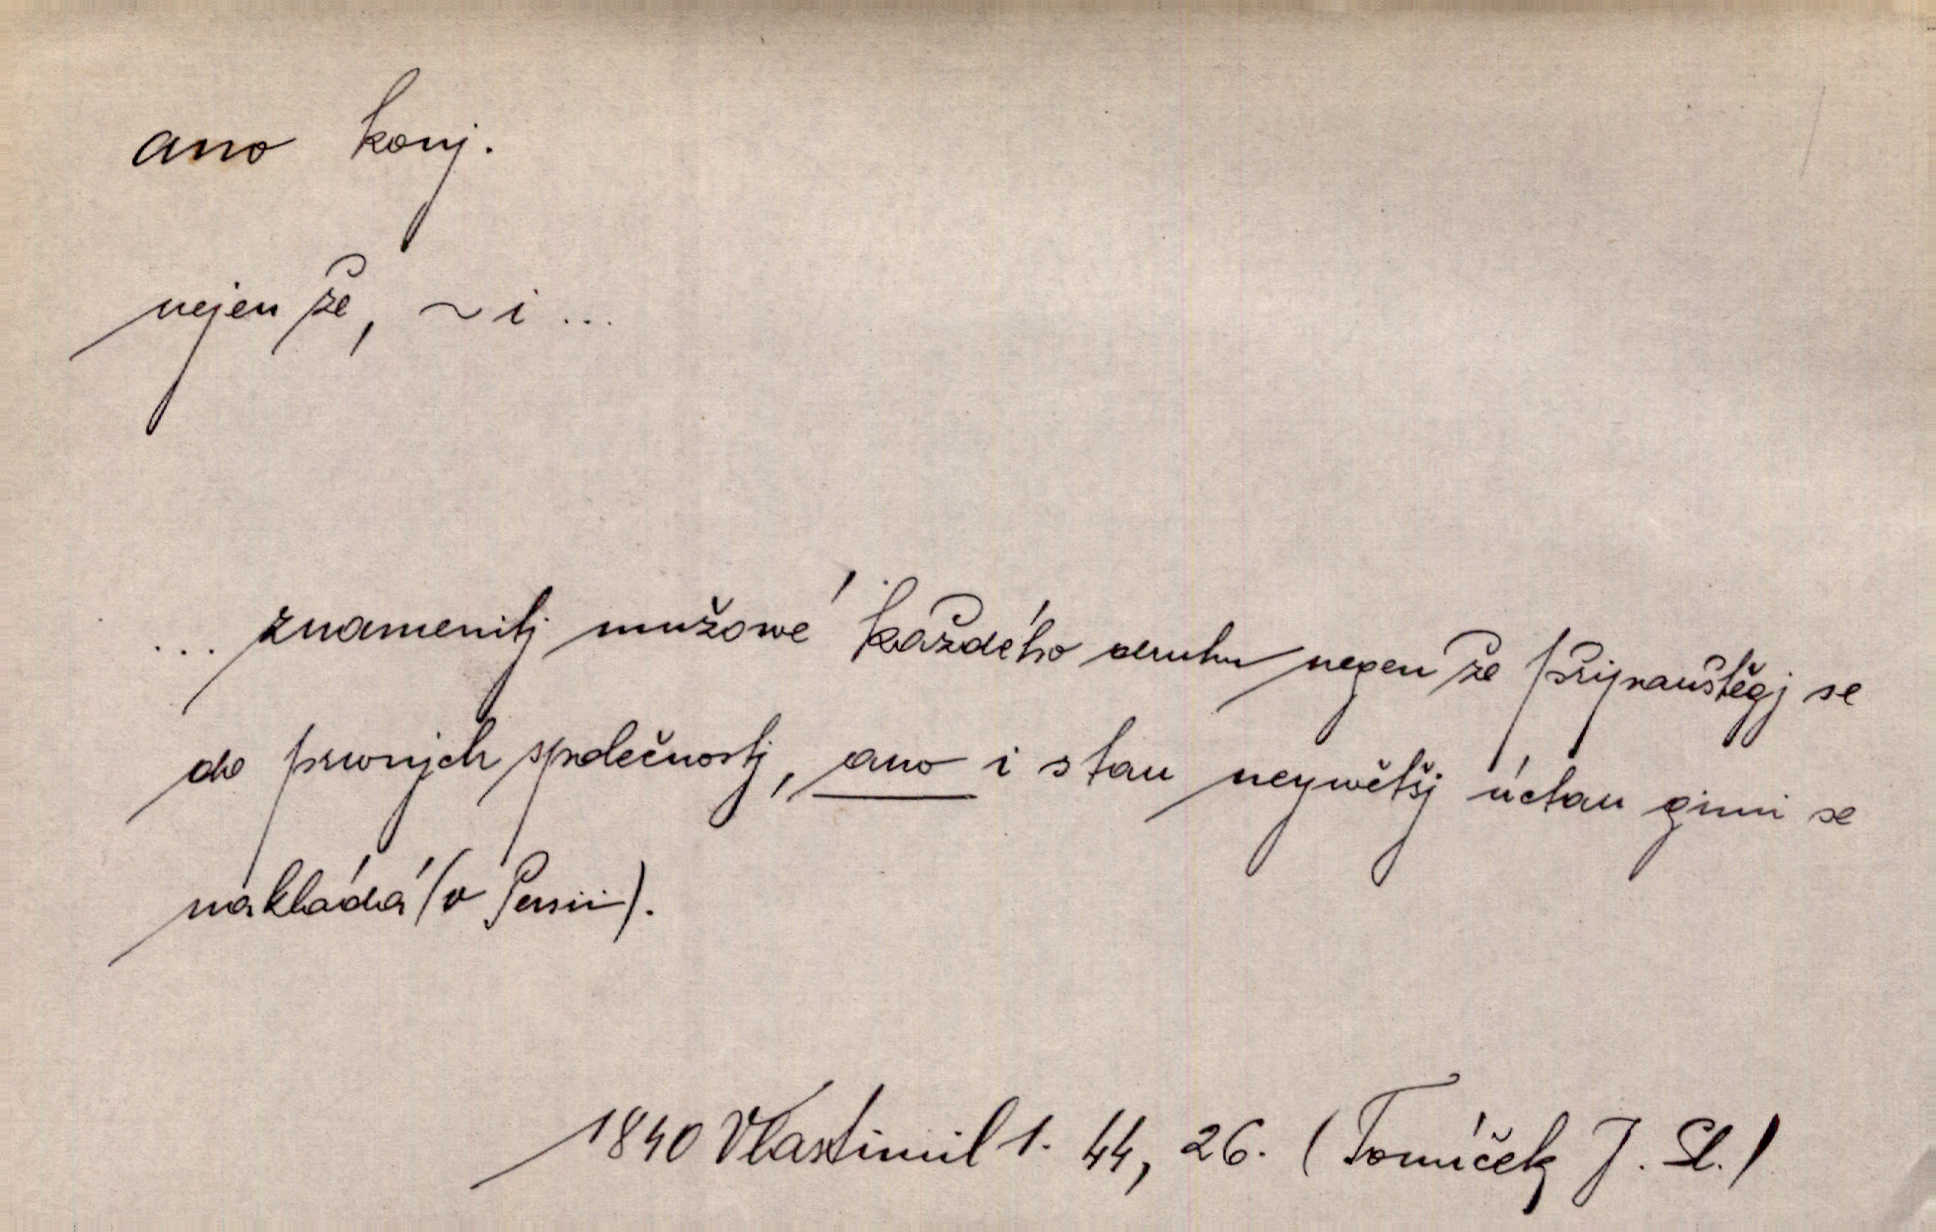 ano konj.
nejen že, ~ i ...
... znamenitj mužowé každého druhu negen že připauštěgj se
do prwnjch společnostj, ano i s tau neywětšj úctau gimi se
nakládá (v Persii).
1840 Vlastimil 1. 44, 26. (Tomíček J. Sl.)